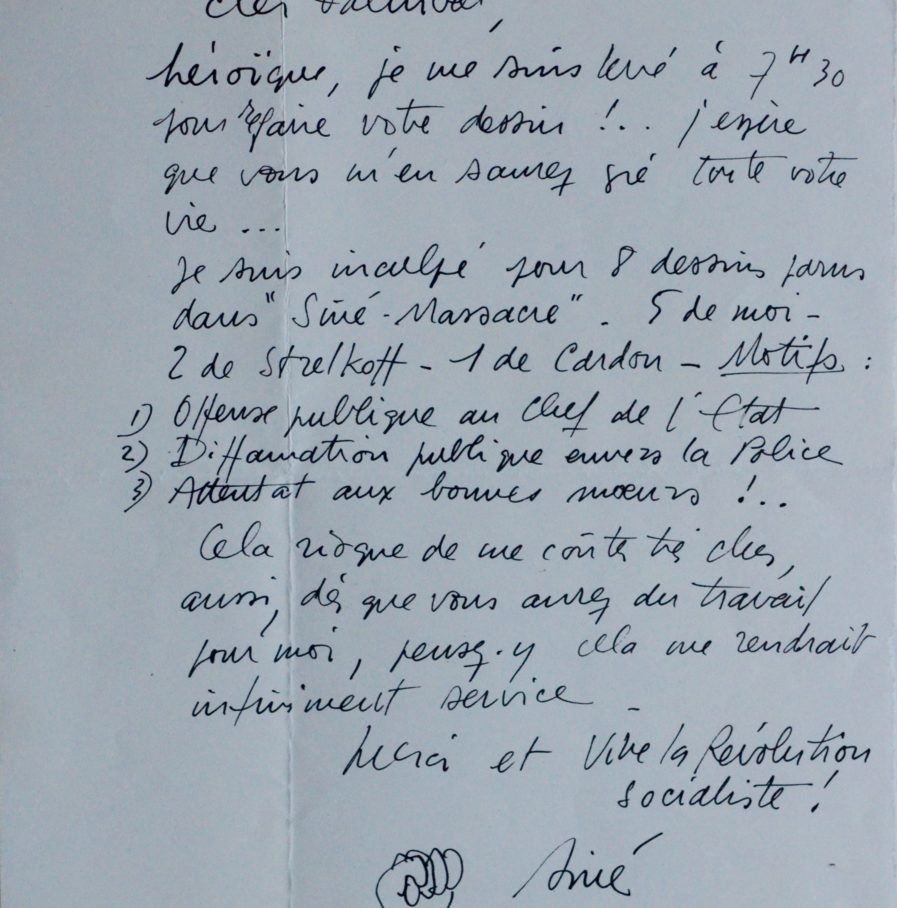 héroïque, je me suis levé à 7H30
pour refaire votre dessin !.. j'espère
que vous m'en saurez gré toute votre
vie ...
Je suis inculpé pour 8 dessins parus
dans "Siné-Massacre". 5 de moi -
2 de Strelkoff - 1 de Cardon - Motifs :
1) Offense publique au Chef de l'Etat
2) Diffamation publique envers la Police
3) Attentat aux bonnes mœurs !..
Cela risque de me coûter très cher,
aussi, dès que vous aurez du travail
pour moi, pensez-y cela me rendrait
infiniment service -
Merci et Vive la Révolution
socialiste !
Siné